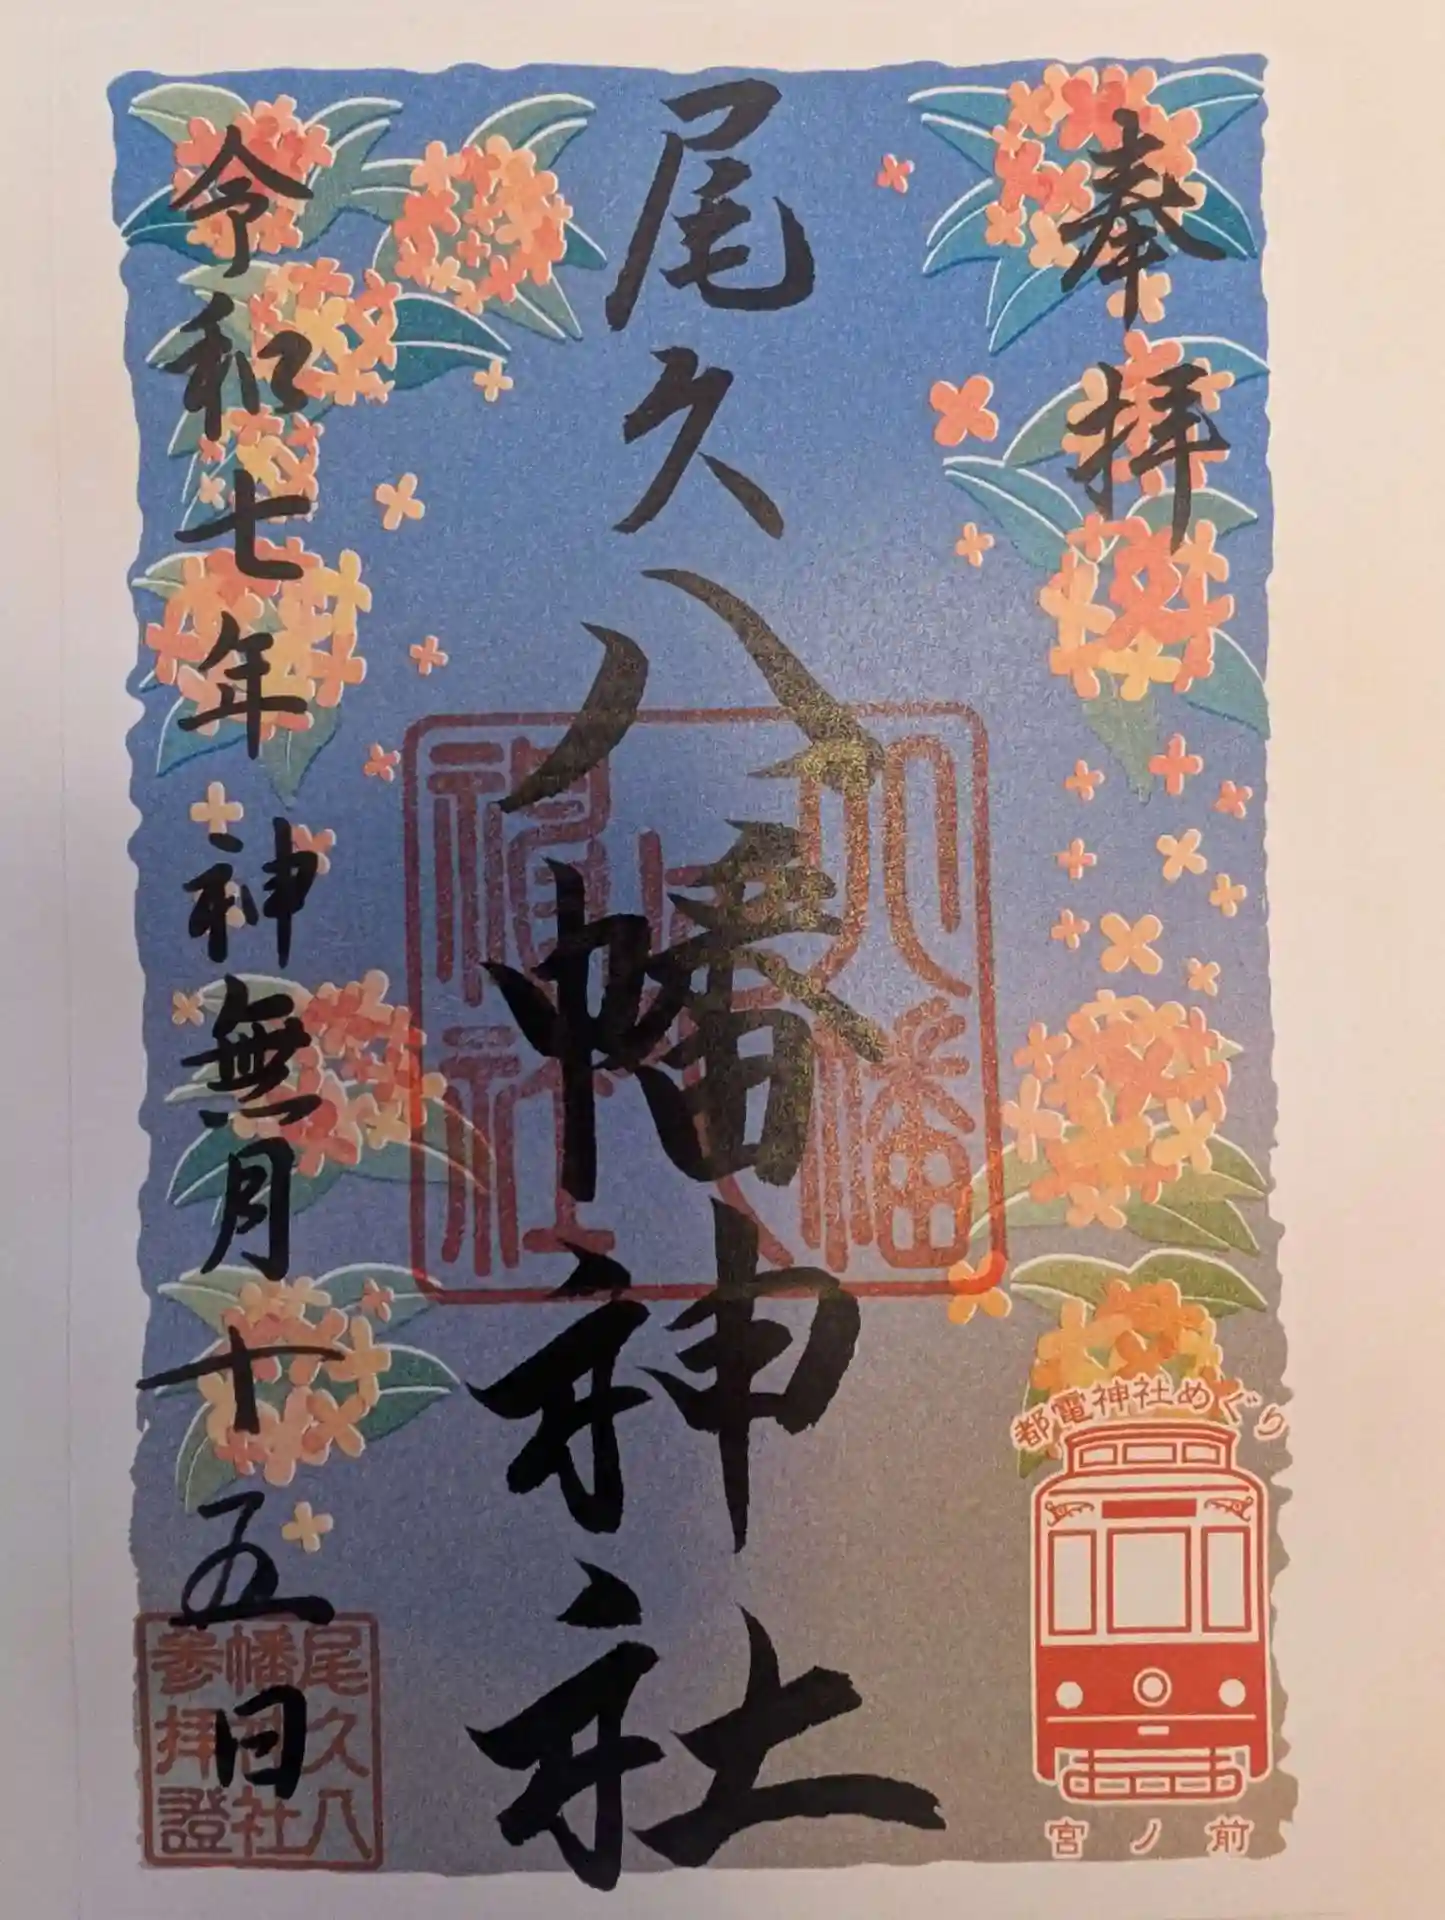 奉拝
尾久八幡神社
令和七年神無月十五日
八幡
神社
都電神社めぐり
宮ノ前
尾久八
幡神社
参拝證